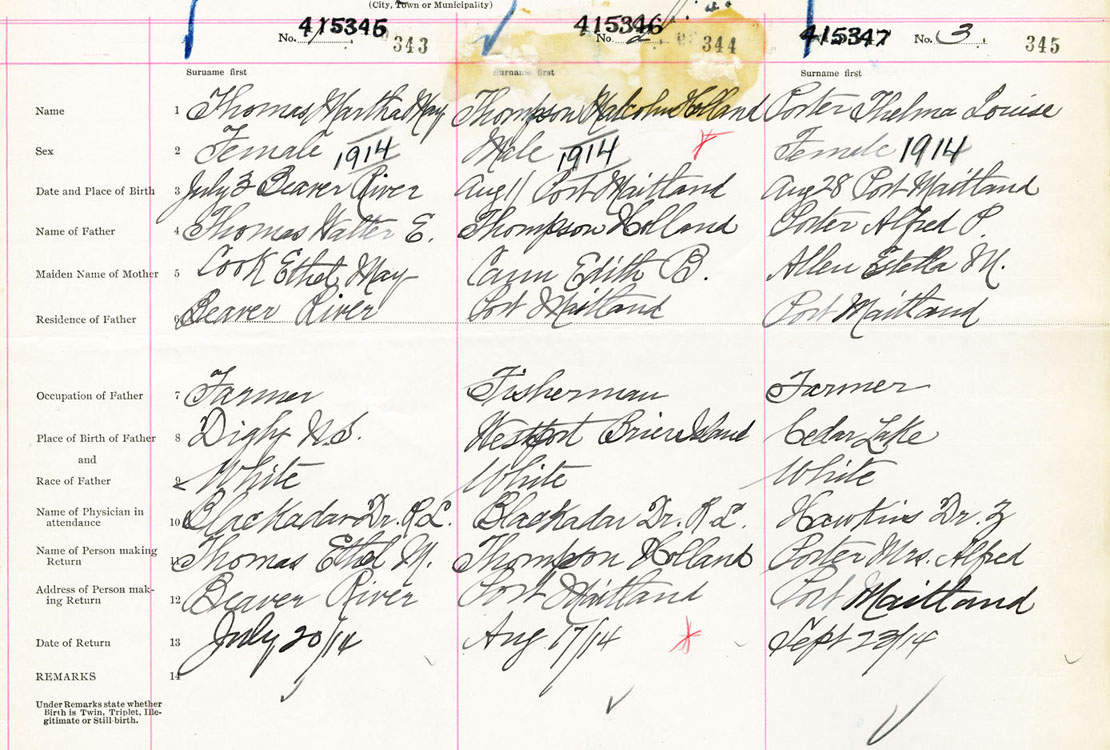 (City, Town or Municipality)
415345 415346 415347
No. 1 343 No. 2 344 No. 3 345
Surname first Surname first Surname first
Name 1 Thomas Martha May Thompson Malcolm Holland Porter Thelma Louise
Sex 2 Female 1914 Male 1914 Female 1914
Date and Place of Birth 3 July 3 Beaver River Aug 11 Port Maitland Aug 28 Port Maitland
Name of Father 4 Thomas Walter E. Thompson Holland Porter Alfred P.
Maiden Name of Mother 5 Cook Ethel May Cann Edith B. Allen Estella M.
Residence of Father 6 Beaver River Port Maitland Port Maitland
Occupation of Father 7 Farmer Fisherman Farmer
Place of Birth of Father 8 Digby N.S. Westport Brier Island Cedar Lake
and
Race of Father 9 White White White
Name of Physician in
attendance 10 Blackadar Dr. R L. Blackadar Dr. R L. Hawkins Dr. Z
Name of Person making
Return 11 Thomas Ethel M. Thompson Holland Porter Mrs. Alfred
Address of Person mak-
ing Return 12 Beaver River Port Maitland Port Maitland
Date of Return 13 July 20/14 Aug 17/14 Sept 23/14
REMARKS 14
Under Remarks state whether
Birth is Twin, Triplet, Ille-
gitimate or Still-birth.